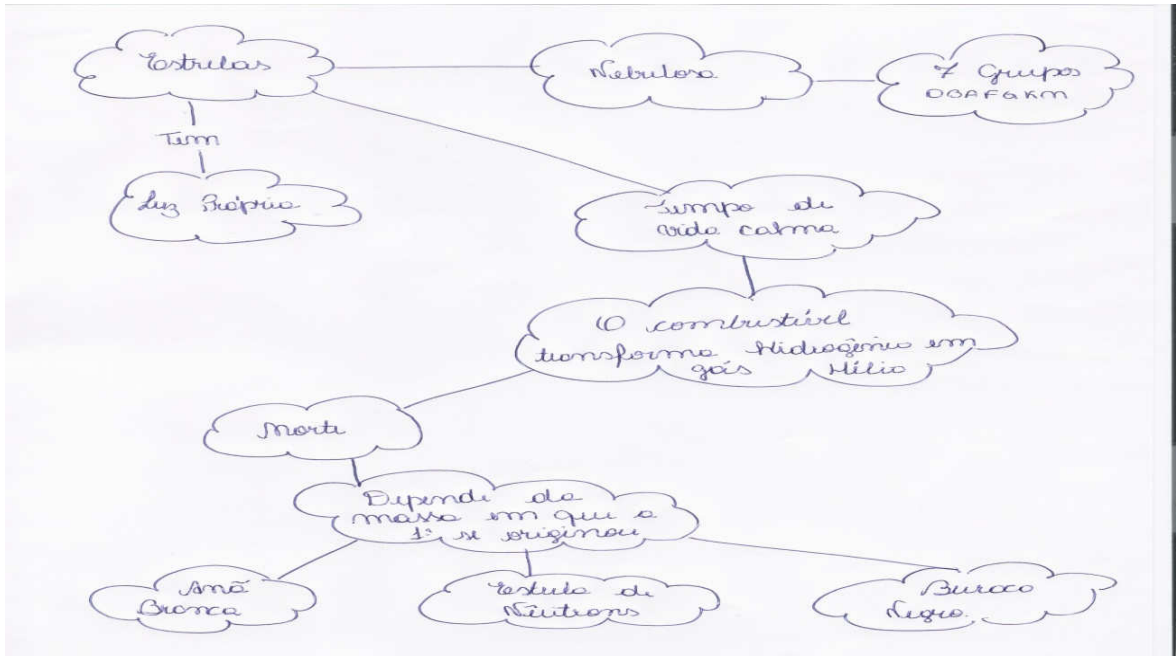 Estrelas
Nebulosa
7 Grupos
OBAFGKM
Tem
Luz Própria
Tempo de
vida calma
O combustível
transforma Hidrogênio em
gás Hélio
Morte
Depende da
massa em que a
1ª se originou
Anã
Branca
Estrela de
Nêutrons
Buraco
Negro.